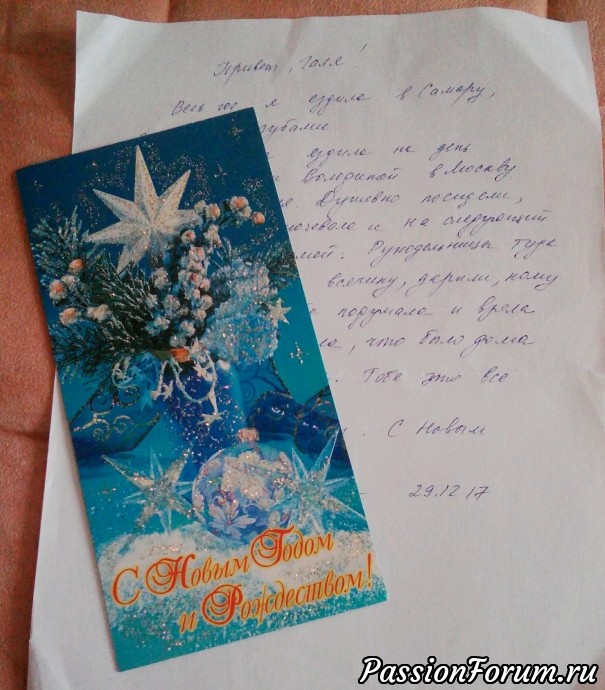 Привет, Галя!
Весь год я ездила в Самару,
зубами
ездила на день
Володиной в Москву
Душевно посидели,
ночевала и на следующий
мой. Рукодельницы
всячину, дарили, кому
подумала и
, что было дома
. Тебе это все
. С Новым
29.12 17
С Новым Годом
и Рождеством!
PassionForum.ru